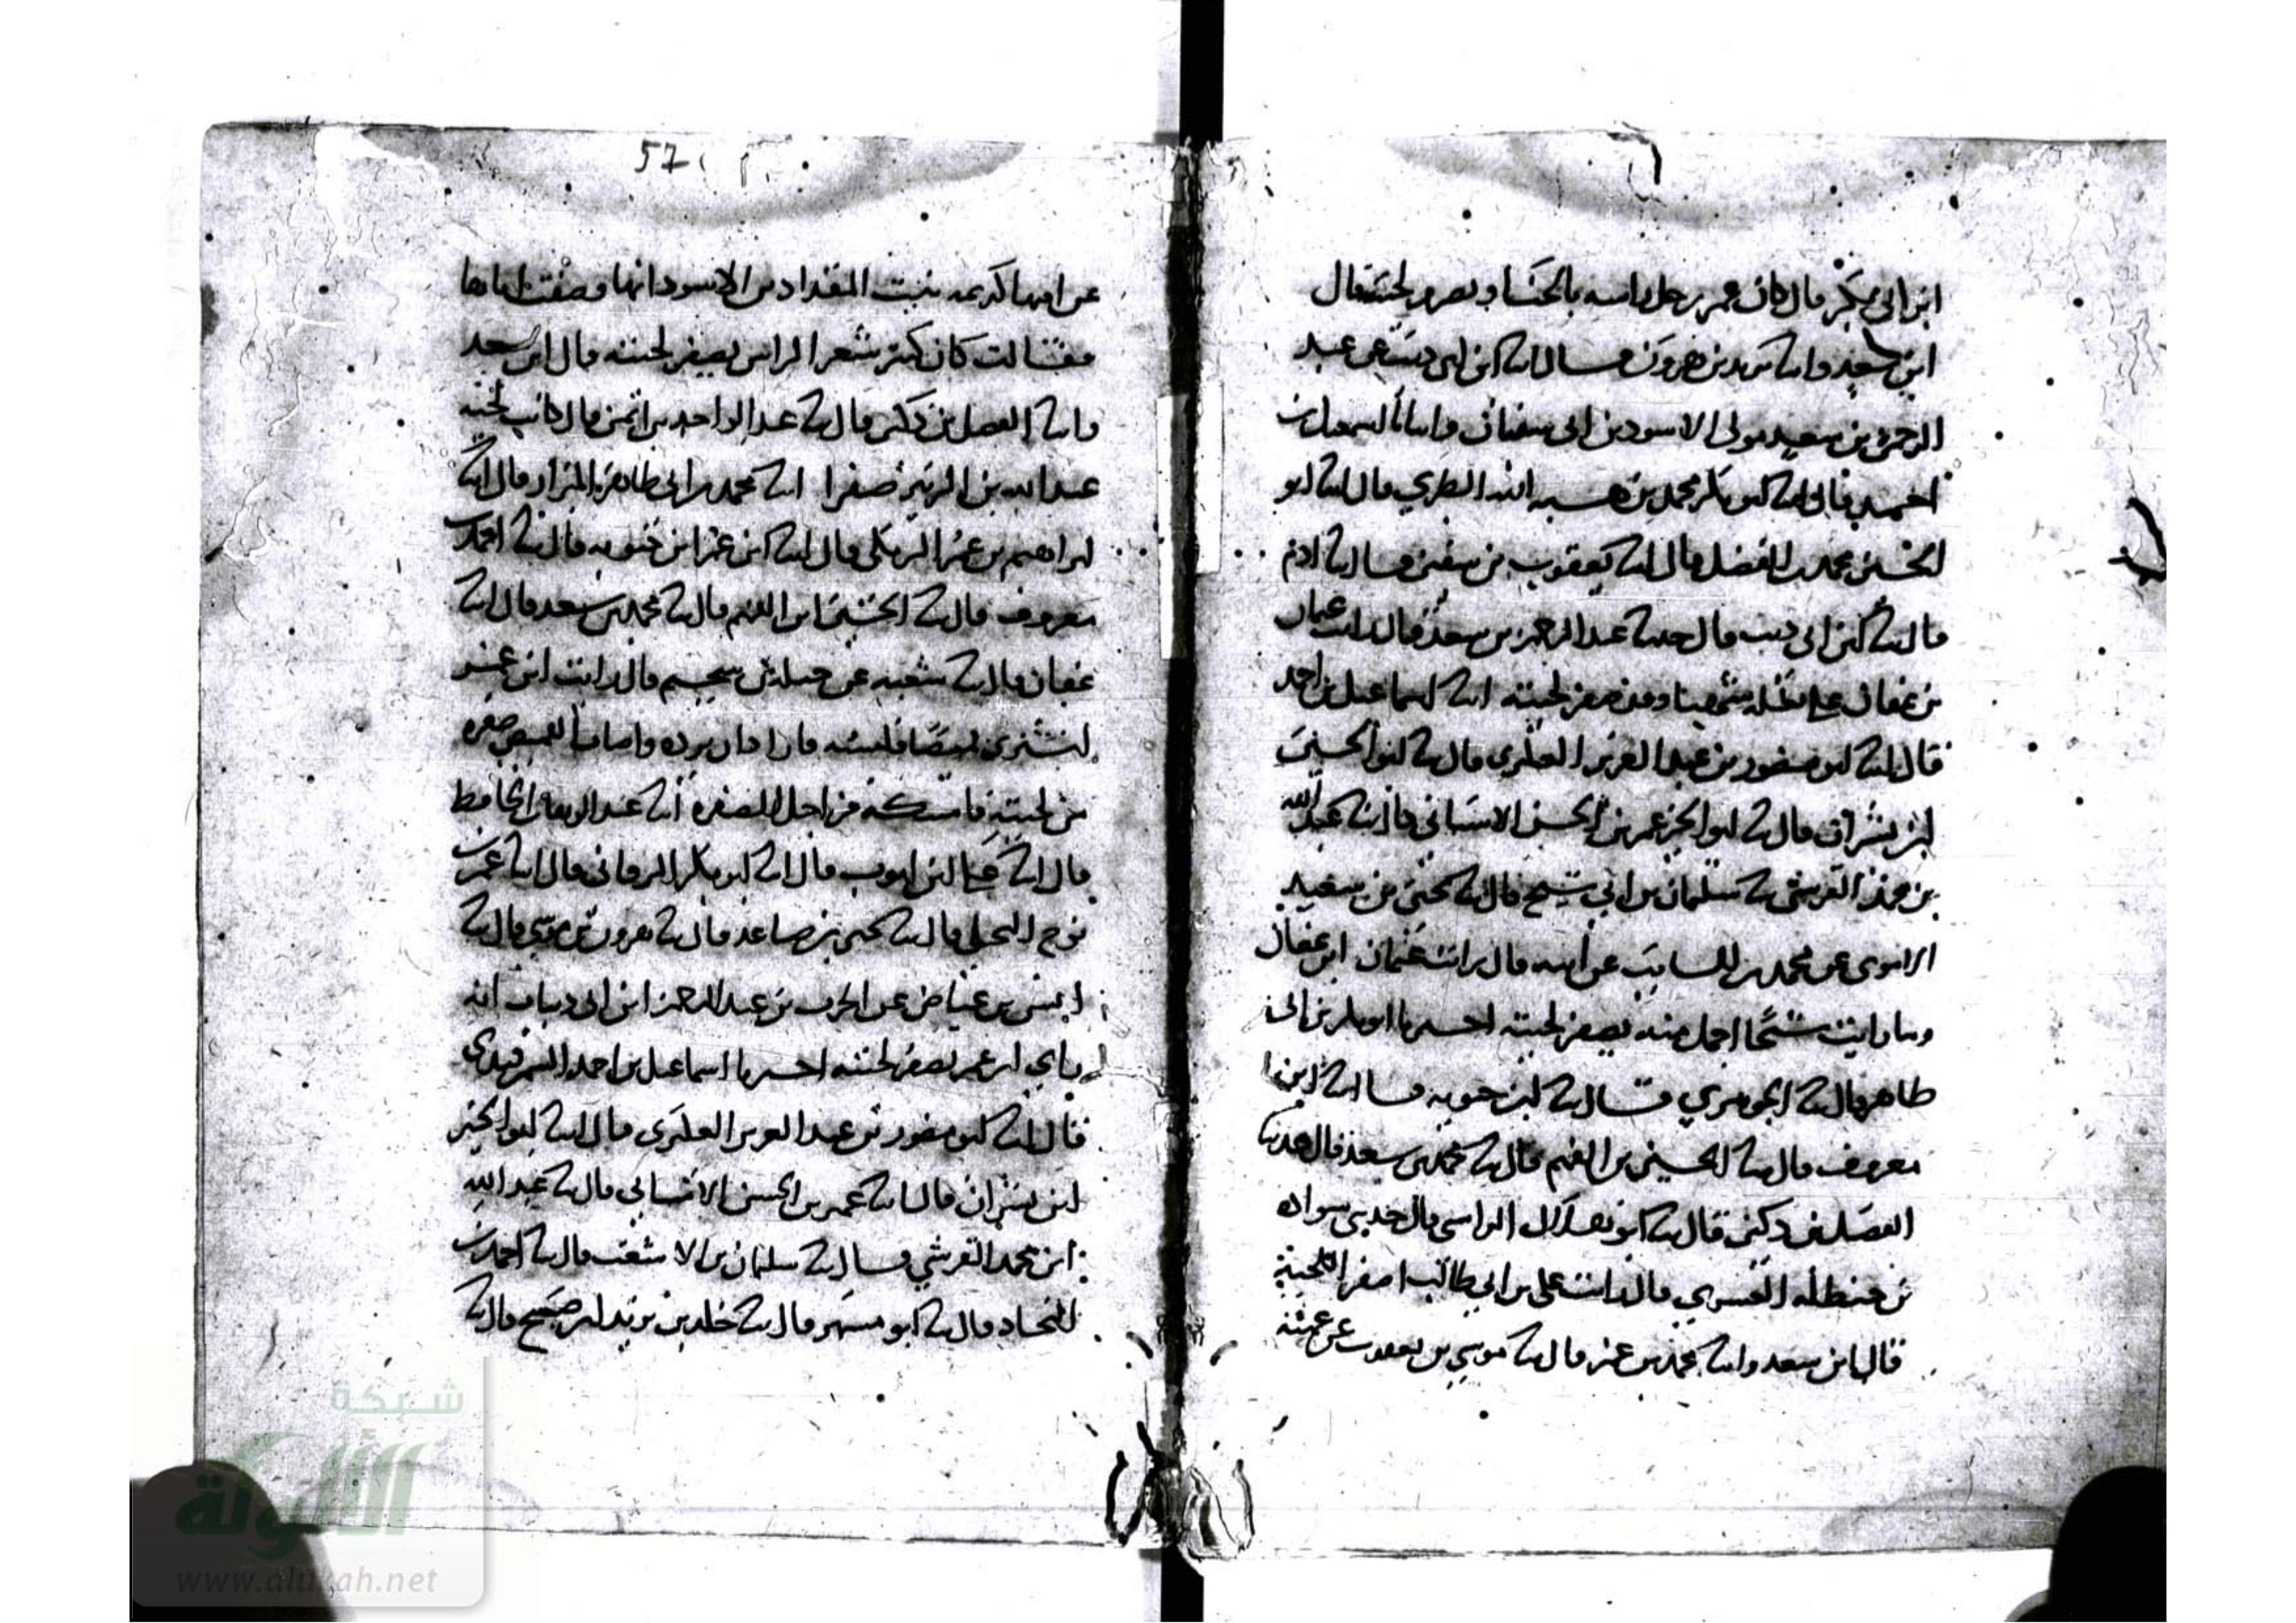 ابن ابي بكر قال كان عمر يرجل راسه بالحنا و يصفر لحيته قال
ابن سعد وانا يزيد بن هرون قال انا ابن ابي ذيب عن عبد
الرحمن بن سعيد مولى الاسود بن ابي سفيان وانبأنا اسمعيل بن
احمد قال انا ابو بكر محمد بن هبه الله الطبري قال انا ابو
الحسين محمد بن الفضل قال انا يعقوب بن سفين قال نا ادم
قال نا ابن ابي ذيب قال حدثنا عبد الرحمن بن سعد قال رايت عثمان
بن عفان على بغله وقد صفر لحيته انا اسماعيل بن احمد
قال انا ابو منصور بن عبد العزيز العكبري قال نا ابو الحسين
ابن بشران قال نا عمر بن الحسن الاشناني قال نا عبد الله
بن محمد القرشي نا سليمان بن ابي شيخ قال نا يحيى بن سعيد
الاموي عن محمد بن السايب عن أبيه قال رايت عثمان ابن عفان
وما رايت شيخا اجمل منه يصفر لحيته اخبرنا ابو بكر بن ابي
طاهر قال نا الجوهري قال نا ابن حيويه قال انا ابن
معروف قال نا الحسين بن الفهم قال نا محمد بن سعد قال حدثنا
الفضل بن دكين قال نا ابو هلال الراسبي قال حدثني سواده
بن حنظله القشيري قال رايت علي بن ابي طالب اصفر اللحية
قال ابن سعد وانا محمد بن عمر قال نا موسى بن يعقوب عن عمته
57
عن امها كريمه بنت المقداد بن الاسود انها وصفت اباها
فقالت كان كثير شعر الراس يصفر لحيته قال ابن سعد
وانا الفضل بن دكين قال نا عبد الواحد بن ايمن قال كانت لحية
عبد الله بن الزبير صفرا انا محمد بن ابي طاهر البزاز قال انا
ابراهيم بن عمر البرمكي قال انا ابن حيويه قال نا احمد بن
معروف قال نا الحسين ابن الفهم قال نا محمد بن سعد قال انا
عفان قال نا شعبه عن جبلة بن سحيم قال رايت ابن عمر
يشتري قميصا فلبسه فاراد ان يرده فاصاب القميص صفره
من لحيته فامسكه من اجل الصفره انا عبد الوهاب الحافظ
قال انا علي ابن ايوب قال انا ابو بكر البرقاني قال انا عمر بن
نوح البجلي قال نا يحيى بن صاعد قال نا هرون بن موسى قال نا
انس بن عياض عن الحرث بن عبد الرحمن ابن ابي ذباب انه
راي ابن عمر يصفر لحيته اخبرنا اسماعيل بن احمد السمرقندي
قال انا ابو منصور بن عبد العزيز العكبري قال انا ابو الحسين
ابن بشران قال انا عمر بن الحسن الاشناني قال نا عبد الله
ابن محمد القرشي قال نا سليمان بن الاشعث قال نا احمد بن
قال نا ابو مسهر قال نا خلد بن يزيد بن صبيح قال نا
شبكة
الألوكة
www.alukah.net